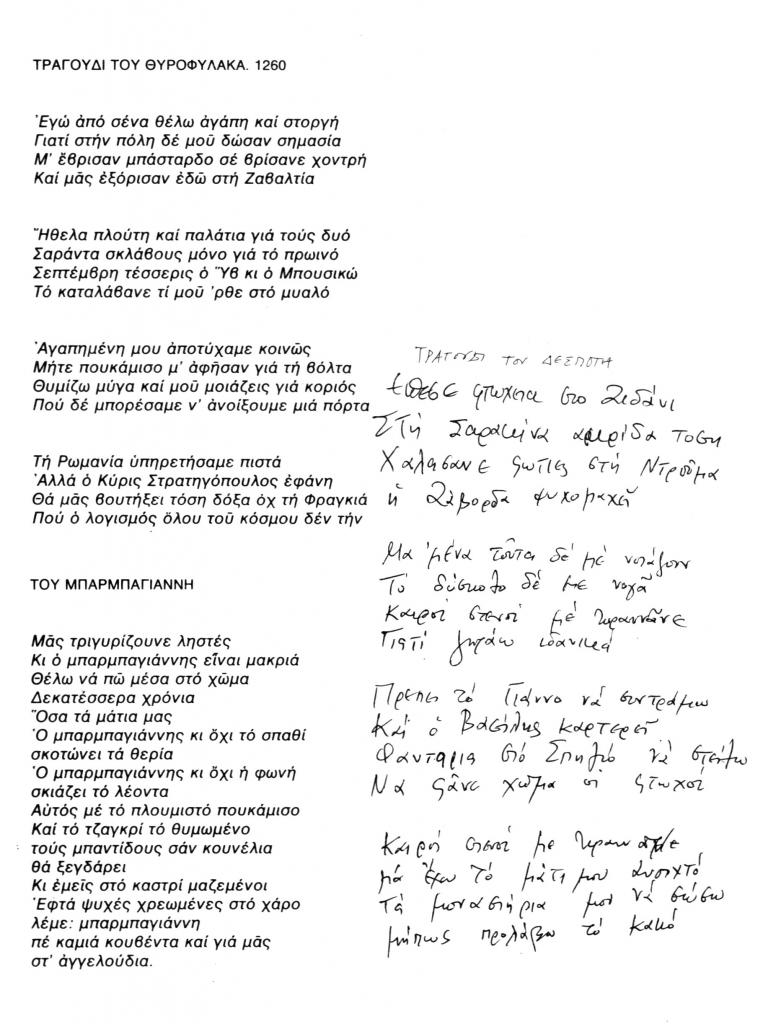 ΤΡΑΓΟΥΔΙ ΤΟΥ ΘΥΡΟΦΥΛΑΚΑ. 1260
Ἐγώ ἀπό σένα θέλω ἀγάπη καί στοργή
Γιατί στήν πόλη δέ μοῦ δώσαν σημασία
Μ' ἔβρισαν μπάσταρδο σέ βρίσανε χοντρή
Καί μᾶς ἐξόρισαν ἐδῶ στή Ζαβαλτία
Ἤθελα πλούτη καί παλάτια γιά τούς δυό
Σαράντα σκλάβους μόνο γιά τό πρωινό
Σεπτέμβρη τέσσερις ὁ Ὕβ κι ὁ Μπουσικώ
Τό καταλάβανε τί μοῦ 'ρθε στό μυαλό
Ἀγαπημένη μου ἀποτύχαμε κοινῶς
Μήτε πουκάμισο μ' ἀφῆσαν γιά τή βόλτα
Θυμίζω μύγα καί μοῦ μοιάζεις γιά κοριός
Πού δέ μπορέσαμε ν' ἀνοίξουμε μιά πόρτα
Τή Ρωμανία ὑπηρετήσαμε πιστά
Ἀλλά ὁ Κύρις Στρατηγόπουλος ἐφάνη
Θά μᾶς βουτήξει τόση δόξα ὀχ τή Φραγκιά
Πού ὁ λογισμός ὅλου τοῦ κόσμου δέν τήν
ΤΟΥ ΜΠΑΡΜΠΑΓΙΑΝΝΗ
Μᾶς τριγυρίζουνε ληστές
Κι ὁ μπαρμπαγιάννης εἶναι μακριά
Θέλω νά πῶ μέσα στό χῶμα
Δεκατέσσερα χρόνια
Ὅσα τά μάτια μας
Ὁ μπαρμπαγιάννης κι ὄχι τό σπαθί
σκοτώνει τά θερία
Ὁ μπαρμπαγιάννης κι ὄχι ἡ φωνή
σκιάζει τό λέοντα
Αὐτός μέ τό πλουμιστό πουκάμισο
Καί τό τζαγκρί τό θυμωμένο
τούς μπαντίδους σάν κουνέλια
θά ξεγδάρει
Κι ἐμεῖς στό καστρί μαζεμένοι
Ἑφτά ψυχές χρεωμένες στό χάρο
λέμε: μπαρμπαγιάννη
πέ καμιά κουβέντα καί γιά μᾶς
στ' ἀγγελούδια.
ΤΡΑΓΟΥΔΙ ΤΟΥ ΔΕΣΠΟΤΗ
Έπεσε φτώχεια στο Ζιδάνι
Στή Σαρακήνα ακρίδα τόση
Χαλάσανε φωτιές στή
ἡ Ζάβορδα ψυχομαχεῖ
Μα 'μένα τοῦτα δέ μέ νοιάζουν
Τό δύσκολο δέ με νογᾶ
Καιροί στενοί μέ τυραννᾶνε
Γιατί ζητάω ιδανικά
Πρέπει τό Γιάννο νά συντράμω
Καί ὁ Βασίλης καρτερεῖ
Φανταρια στό Σπήλιο νά στείλω
Να φᾶνε χῶμα οἱ φτωχοί
Καιροί στενοί με τυραννᾶνε
μά ἔχω τό μάτι μου ἀνοιχτό
Τά μοναστήρια μου νά σώσω
μήπως προλάβω τό κακό